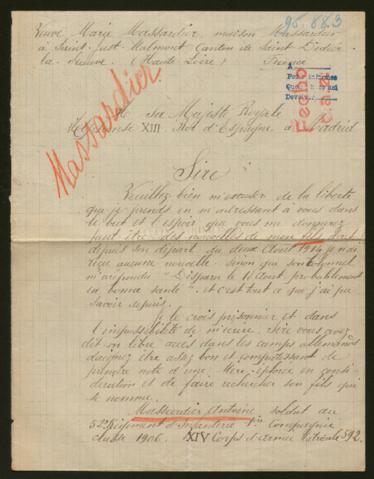 95.883
Veuve Marie Massardier maison Massardier
à Saint-Just Malmont Canton de Saint Didier
la Séauve. (Haute Loire) France
Massardier
A Sa Majesté Royale
XIII Roi d'Espagne à Madrid
Fecho
Sire
Veuillez bien m'excuser de la liberté
que je prends en m'adressant à vous dans
le but et l'espoir que vous me donnerez
peut être des nouvelles de mon fils dont
depuis son départ du deux Août 1914 je n'ai
reçu aucune nouvelle sinon que son colonel
m'a répondu "Disparu le 18 Août probablement
en bonne santé" et c'est tout ce que j'ai pu
savoir depuis.
Je le crois prisonnier et dans
l'impossibilité de m'écrire. Sire vous avez
dit-on libre accès dans les camps allemands
daignez être assez bon et compatissant de
prendre note d'une Mère éplorée en consi-
dération et de faire rechercher son fils qui
se nomme.
Massardier Antoine soldat au
52e Régiment d'Infanterie 1re Compagnie
classe 1906. XIV Corps d'Armée Matricule 592.